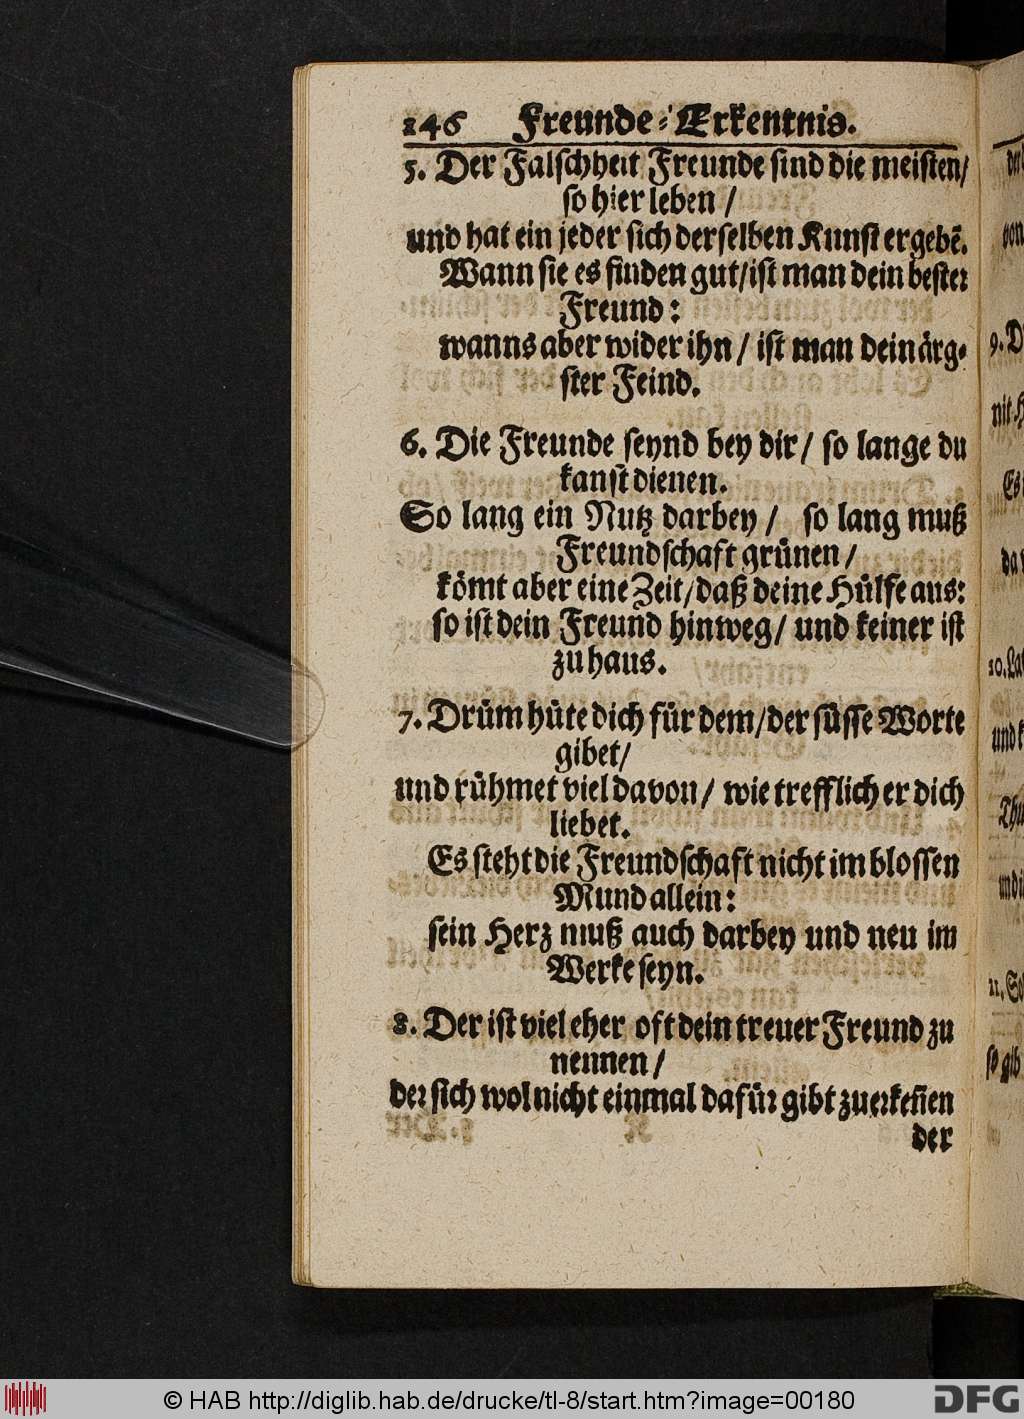 246 Freunde-Erkentnis.
5. Der Falschheit Freunde sind die meisten/
so hier leben /
und hat ein jeder sich derselben Kunst ergebē.
Wann sie es finden gut/ist man dein bester
Freund:
wanns aber wider ihn / ist man dein ärg-
ster Feind.
6. Die Freunde seynd bey dir/ so lange du
kanst dienen.
So lang ein Nutz darbey / so lang muß
Freundschaft grünen /
kömt aber eine Zeit/daß deine Hülfe aus:
so ist dein Freund hinweg/ und keiner ist
zu haus.
7. Drüm hüte dich für dem/der süsse Worte
gibet/
und rühmet viel davon/ wie trefflich er dich
liebet.
Es steht die Freundschaft nicht im blossen
Mund allein:
sein Herz muß auch darbey und neu im
Werke seyn.
8. Der ist viel eher oft dein treuer Freund zu
nennen /
der sich wol nicht einmal dafür gibt zuerkeñen
der
9. D
nit H
Es
da
10. La
und k
Thu
11. So
so gib
© HAB http://diglib.hab.de/drucke/tl-8/start.htm?image=00180
DFG